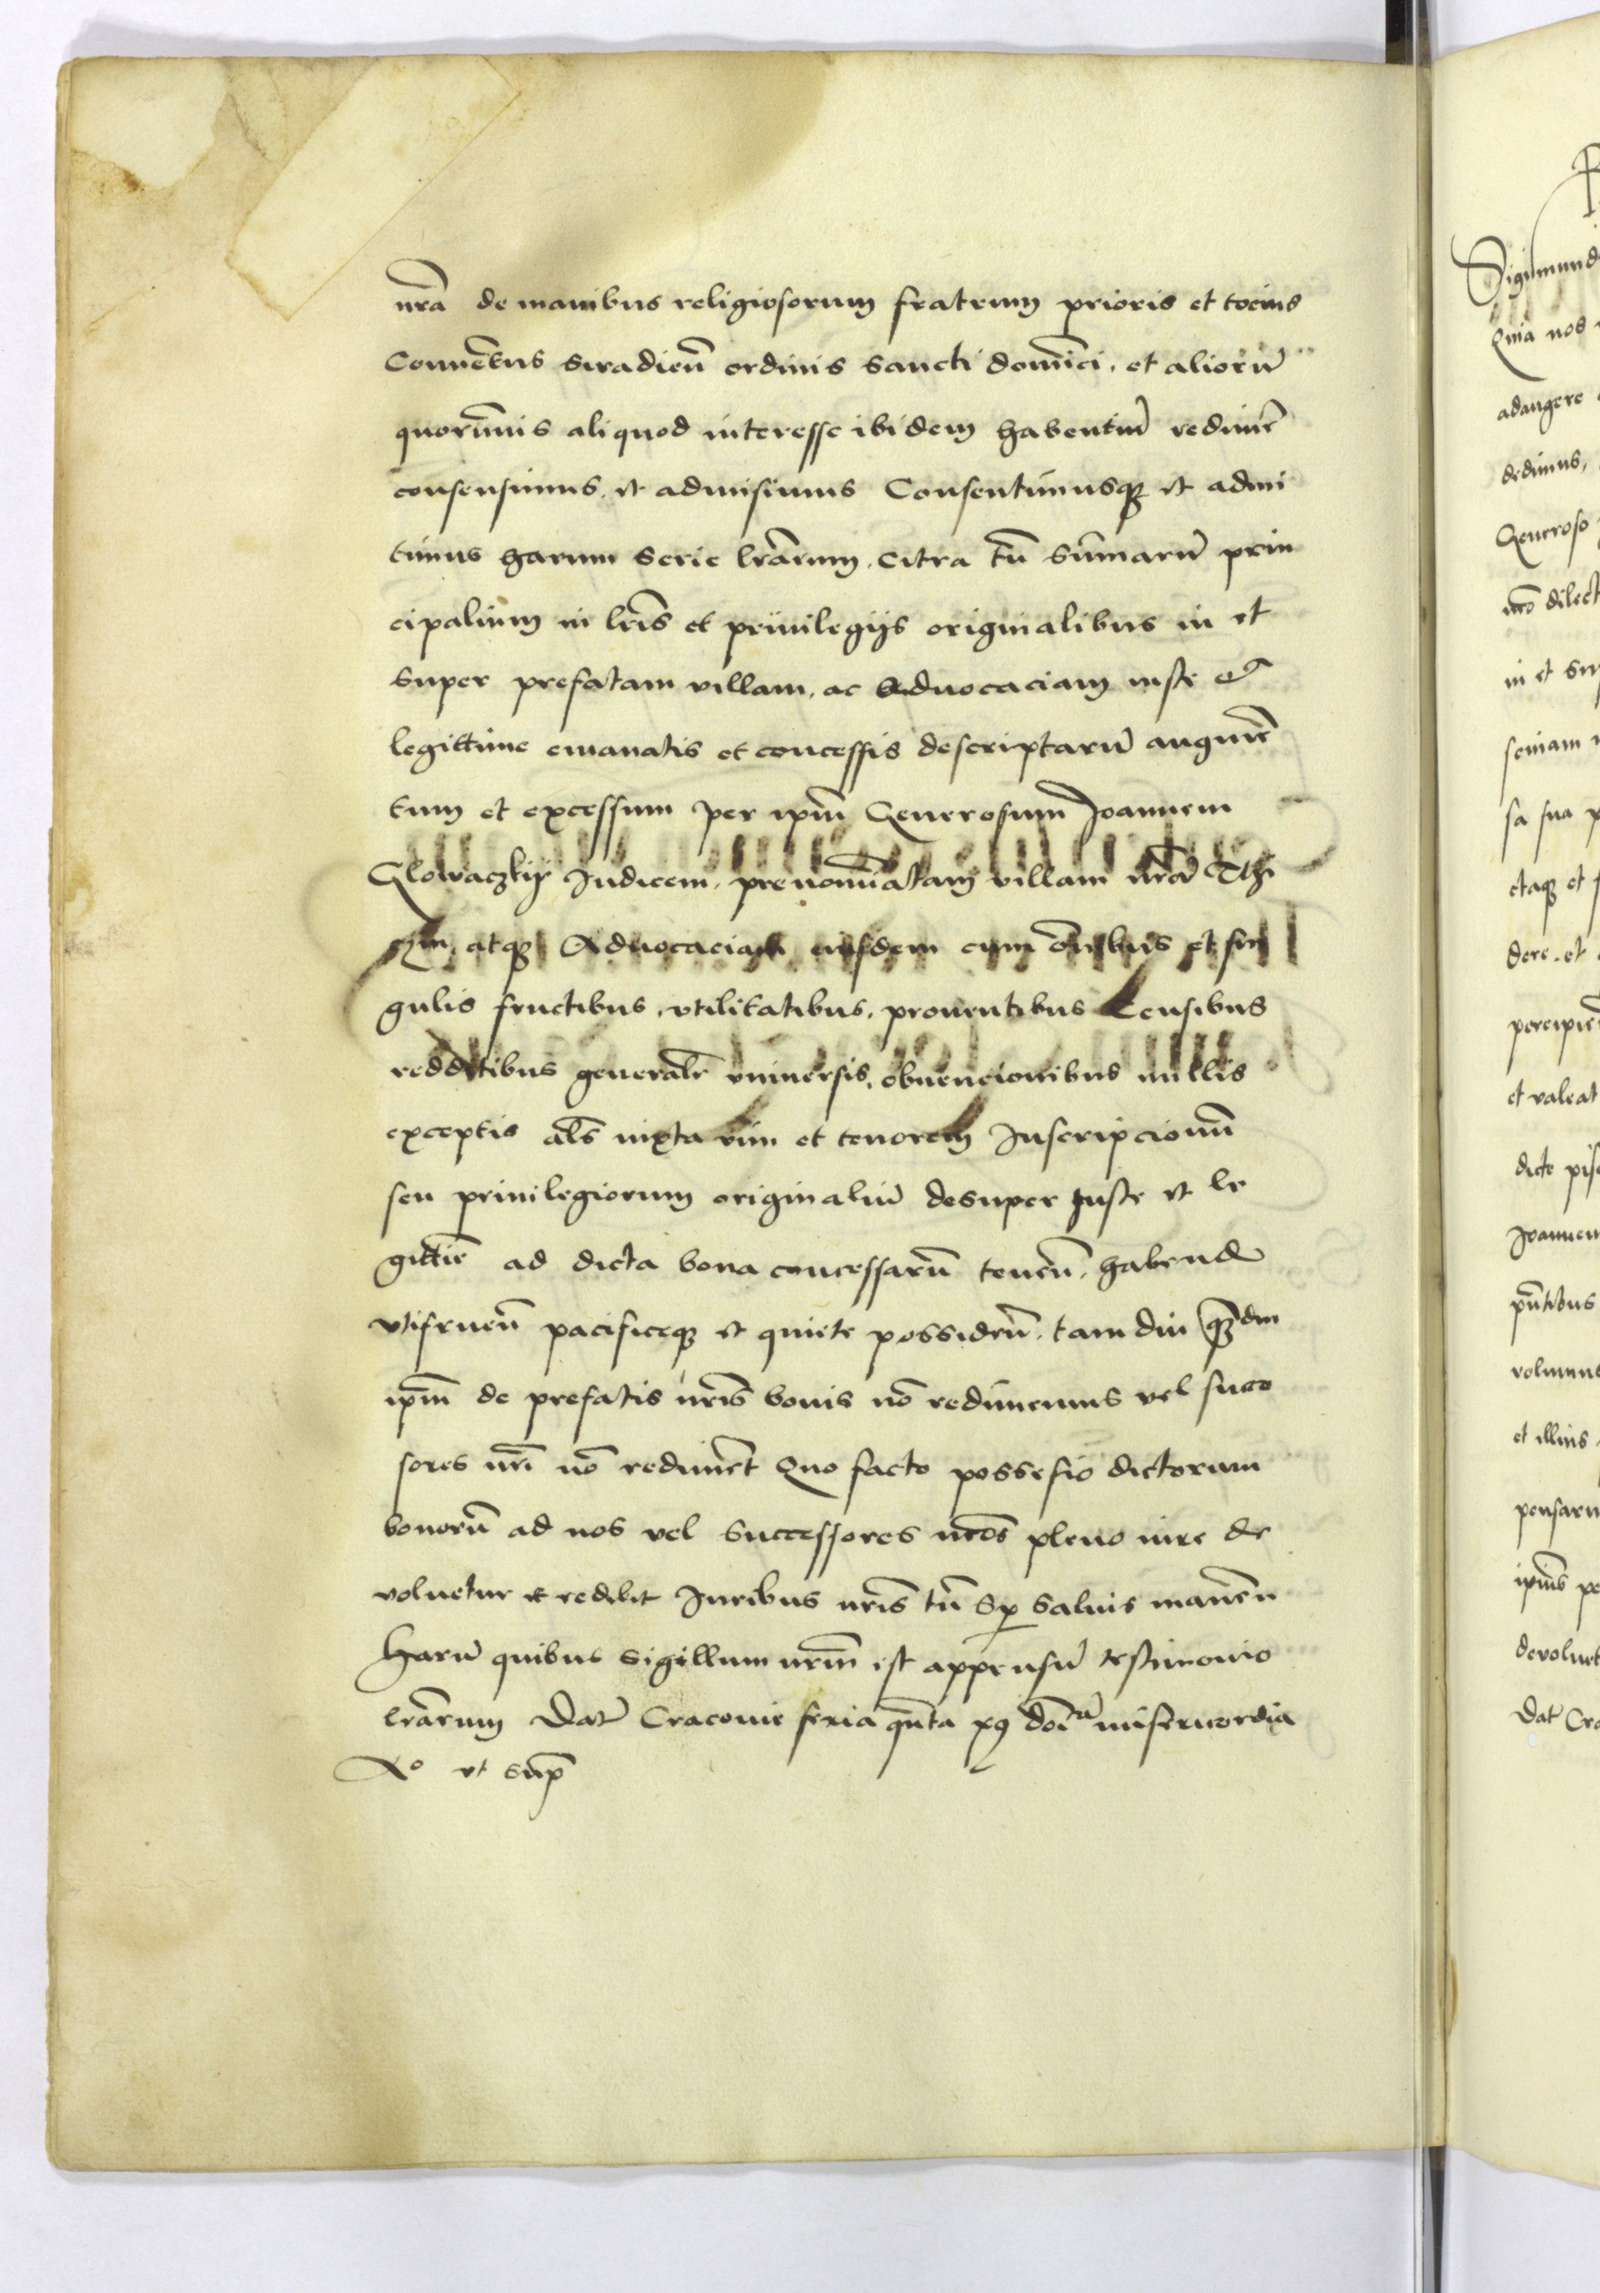 nrã de manibus religiosorum fratrum prioris et tocius
Conuẽtus Siradieñ ordinis Sancti domĩci, et aliorũ
quorũuis aliquod interesse ibidem habentiũ redimẽ
consensimus, et admisimus Consentimusqꝫ et admi
timus harum serie lrãrum, Citra tñ Sũmarũ prin
cipalium in lrĩs et priuilegijs originalibus in et
super prefatam villam, ac Aduocaciam iuste et
legittime emanatis et concessis descriptarũ augmẽ
tum et excessum per ipm̃ Generosum Joannem
Glowaczky Judicem, prenomĩatam villam nrãm
atqꝫ Aduocaciam eiusdem cum om̃ibus et sin
gulis fructibus, vtilitatibus, prouentibus Censibus
redditibus generalr̃ vniuersis, obuencionibus nullis
exceptis als̃ iuxta vim et tenorem Inscripcionũ
seu priuilegiorum originaliũ desuper Iuste et le
gittiẽ ad dicta bona concessarũ teneñ, habend
vtifrueñ pacificeqꝫ et quiete possideñ, tam diu qꝫdiu
ipm̃ de prefatis nrĩs bonis nõ redimemus vel succes
sores nrĩ nõ redimẽt Quo facto possessio dictorum
bonorũ ad nos vel Successores nrõs pleno iure de
voluetur et redibit Iuribus nrĩs tñ Sꝑ Saluis maneñ
Harũ quibus Sigillum nrm̃ est appensũ testimonio
lrãrum Dat̃ Cracouie feria quĩta p9 doĩca misericordia
Aº vt Supͣ
Sigismund
Quia nos
adaugere
dedimus,
Generoso
nrõ dilect
in et sup
sa sua p
etaqꝫ et
dere, et
percipien
et valeat
dicte pis
Joannem
pñtibus
volumus
et illius
pensarũ
devoluet
Dat̃ Cra